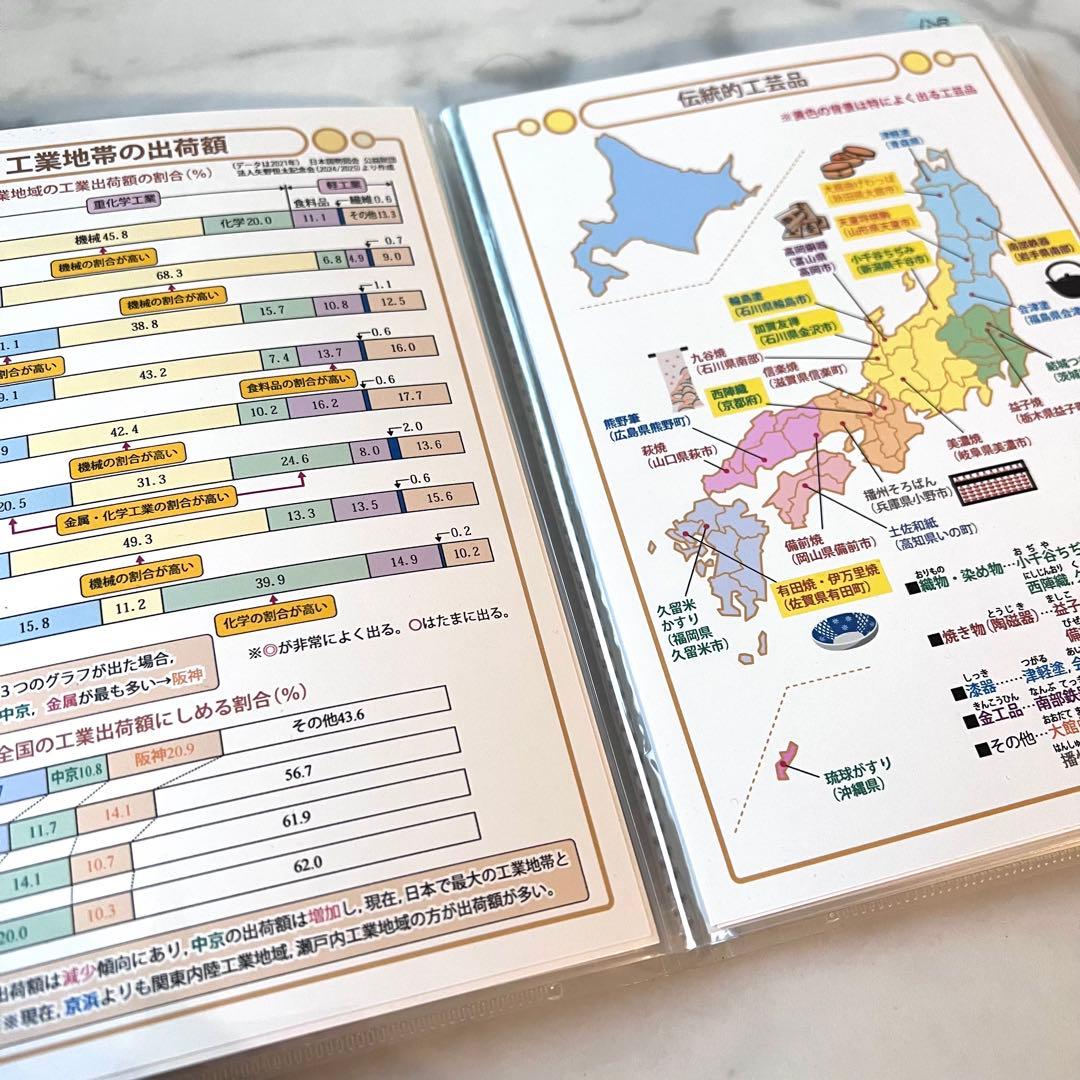 工業地帯の出荷額
(データは2021年) 日本国勢図会 公益財団
法人矢野恒太記念会(2024/2025)より作成
業地域の工業出荷額の割合(%)
重化学工業
軽工業
食料品
繊維0.6
機械45.8
化学20.0
11.1
その他13.3
機械の割合が高い
0.7
68.3
6.8
4.9
9.0
機械の割合が高い
1.1
1.1
38.8
15.7
10.8
12.5
割合が高い
0.6
9.1
43.2
7.4
13.7
16.0
食料品の割合が高い
0.6
9
42.4
10.2
16.2
17.7
機械の割合が高い
2.0
20.5
31.3
24.6
8.0
13.6
金属・化学工業の割合が高い
0.6
49.3
13.3
13.5
15.6
機械の割合が高い
0.2
15.8
11.2
39.9
14.9
10.2
化学の割合が高い
※◎が非常によく出る。○はたまに出る。
3つのグラフが出た場合,
中京, 金属が最も多い→阪神
全国の工業出荷額にしめる割合(%)
7
中京10.8
阪神20.9
その他43.6
11.7
14.1
56.7
14.1
10.7
61.9
20.0
10.3
62.0
出荷額は減少傾向にあり, 中京の出荷額は増加し, 現在, 日本で最大の工業地帯と
※現在, 京浜よりも関東内陸工業地域, 瀬戸内工業地域の方が出荷額が多い。
伝統的工芸品
※黄色の背景は特によく出る工芸品
津軽塗
(青森県)
大館曲げわっぱ
(秋田県大館市)
天童将棋駒
(山形県天童市)
南部鉄器
(岩手県南部)
高岡銅器
(富山県
高岡市)
小千谷ちぢみ
(新潟県小千谷市)
会津塗
(福島県会津
輪島塗
(石川県輪島市)
加賀友禅
(石川県金沢市)
九谷焼
(石川県南部)
信楽焼
(滋賀県信楽町)
結城つ
(茨城
西陣織
(京都府)
益子焼
(栃木県益子町
熊野筆
(広島県熊野町)
美濃焼
(岐阜県美濃市)
萩焼
(山口県萩市)
播州そろばん
(兵庫県小野市)
土佐和紙
(高知県いの町)
備前焼
(岡山県備前市)
有田焼・伊万里焼
(佐賀県有田町)
久留米
かすり
(福岡県
久留米市)
琉球がすり
(沖縄県)
おりもの
おぢや
■織物・染め物…小千谷ちぢ
にしじんおり
西陣織
とうじき
ましこ
■焼き物(陶磁器)…益子
しっき
つがる
■漆器……津軽塗, 会
きんこうひん
なんぶてっ
■金工品…南部鉄
おおだて
■その他…大館
はんしゅ
播